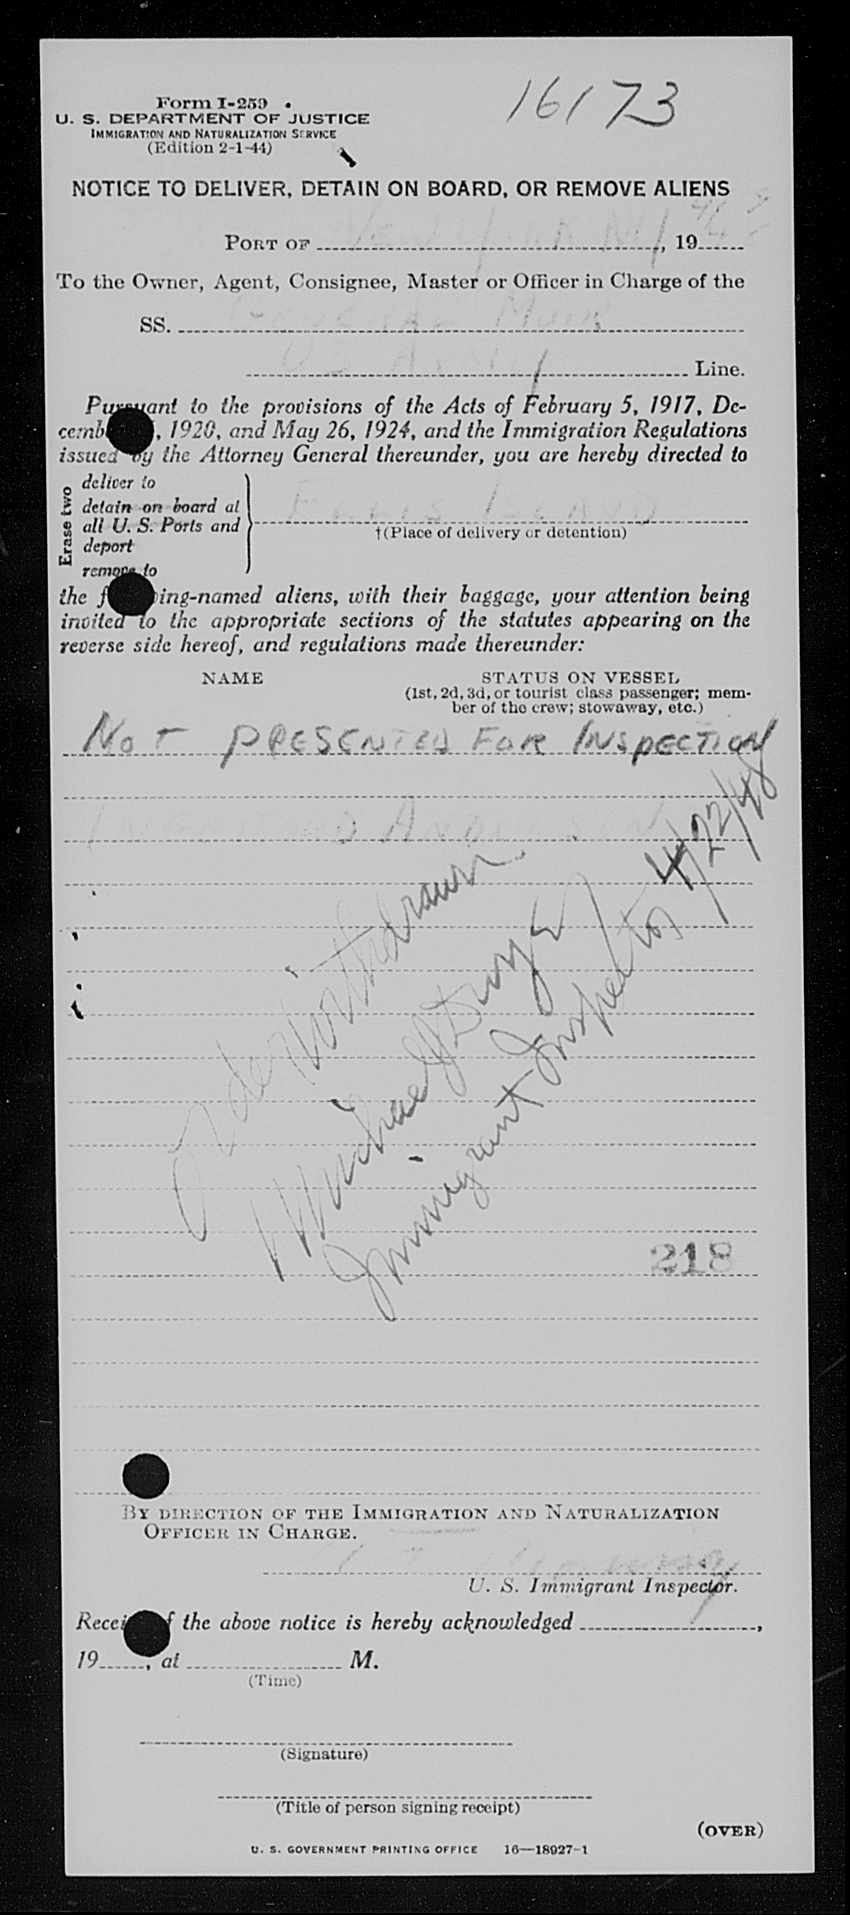 16173
Form I-259
U. S. DEPARTMENT OF JUSTICE
IMMIGRATION AND NATURALIZATION SERVICE
(Edition 2-1-44)
NOTICE TO DELIVER, DETAIN ON BOARD, OR REMOVE ALIENS
PORT OF New York NY, 19
To the Owner, Agent, Consignee, Master or Officer in Charge of the
SS. General Muir
US Army Line.
Pursuant to the provisions of the Acts of February 5, 1917, De-
cemb , 1920, and May 26, 1924, and the Immigration Regulations
issued by the Attorney General thereunder, you are hereby directed to
Erase two
deliver to
detain on board at
all U. S. Ports and
deport
remove to
ELLIS ISLAND
†(Place of delivery or detention)
the f ing-named aliens, with their baggage, your attention being
invited to the appropriate sections of the statutes appearing on the
reverse side hereof, and regulations made thereunder:
NAME
STATUS ON VESSEL
(1st, 2d, 3d, or tourist class passenger; mem-
ber of the crew; stowaway, etc.)
NOT PRESENTED FOR INSPECTION
Order Withdrawn
Michael J Dwyer
Immigrant Inspector 4/22/48
218
BY DIRECTION OF THE IMMIGRATION AND NATURALIZATION
OFFICER IN CHARGE.
U. S. Immigrant Inspector.
Recei f the above notice is hereby acknowledged ,
19 , at M.
(Time)
(Signature)
(Title of person signing receipt)
(OVER)
U. S. GOVERNMENT PRINTING OFFICE 16—18927-1